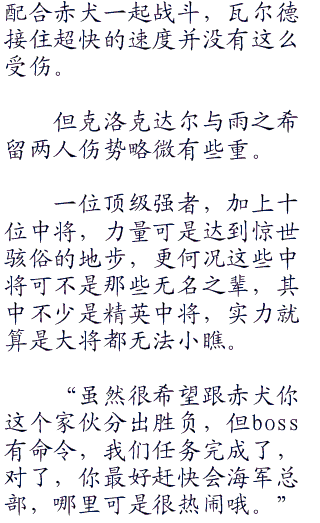 配合赤犬一起战斗，瓦尔德
接住超快的速度并没有这么
受伤。
但克洛克达尔与雨之希
留两人伤势略微有些重。
一位顶级强者，加上十
位中将，力量可是达到惊世
骇俗的地步，更何况这些中
将可不是那些无名之辈，其
中不少是精英中将，实力就
算是大将都无法小瞧。
“虽然很希望跟赤犬你
这个家伙分出胜负，但boss
有命令，我们任务完成了，
对了，你最好赶快会海军总
部，哪里可是很热闹哦。”